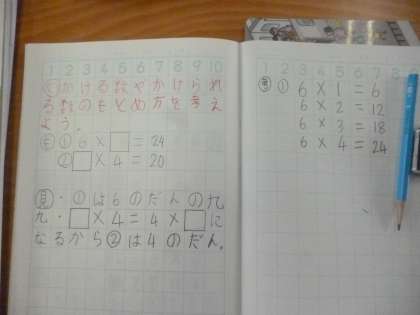 1 2 3 4 5 6 7 8 9 10
めかける数やかけられ
る数のもとめ方を考え
よう。
も① 6 × □ = 24
② □ × 4 = 20
見・①は6のだんの九
九・□×4=4×□に
なるから②は4のだん。
1 2 3 4 5 6 7 8
考① 6 × 1 = 6
6 × 2 = 12
6 × 3 = 18
6 × 4 = 24